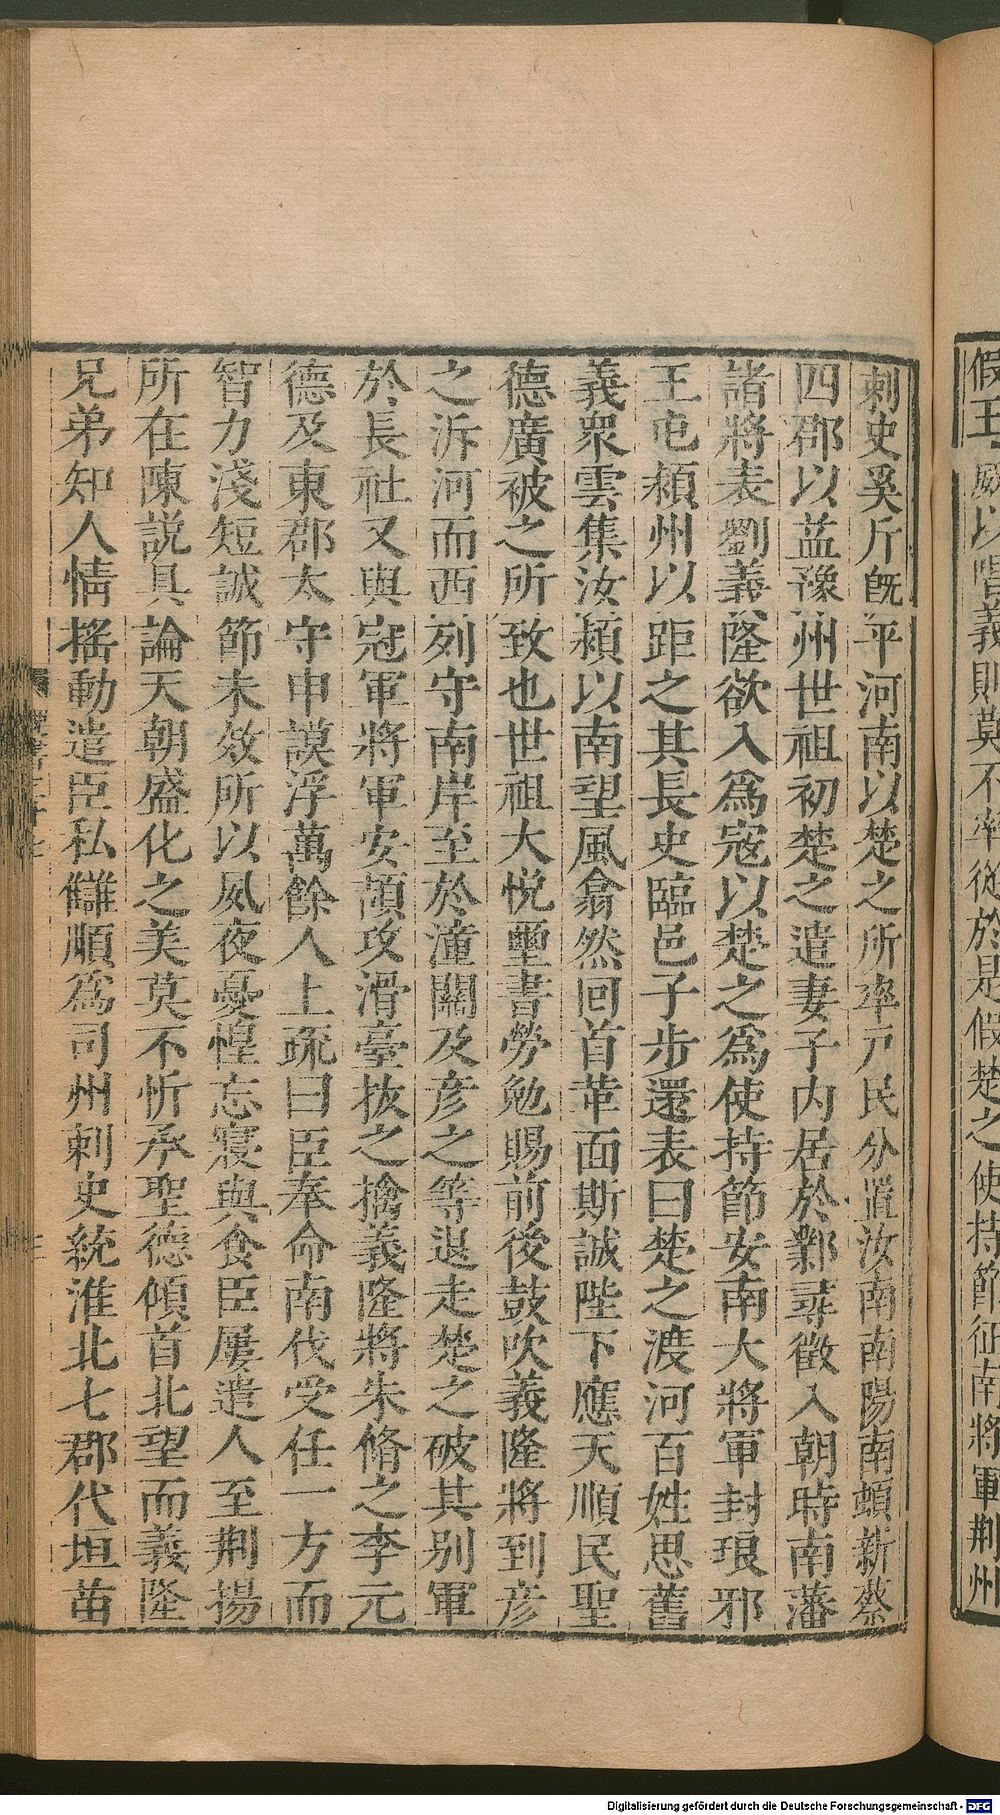 假王威以唱義則莫不率從於是假楚之使持節征南將軍荆州
刺史奚斤旣平河南以楚之所率戸民分置汝南南陽南頓新蔡
四郡以益豫州世祖初楚之遣妻子内居於鄴尋徵入朝時南藩
諸將表劉義隆欲入爲寇以楚之爲使持節安南大將軍封琅邪
王屯潁州以距之其長史臨邑子步還表曰楚之渡河百姓思舊
義衆雲集汝潁以南望風翕然回首革面斯誠陛下應天順民聖
德廣被之所致也世祖大悅璽書勞勉賜前後鼓吹義隆將到彦
之泝河而西列守南岸至於潼關及彦之等退走楚之破其别軍
於長社又與冠軍將軍安頡攻滑臺拔之擒義隆將朱脩之李元
德及東郡太守申謨浮萬餘人上疏曰臣奉命南伐受任一方而
智力淺短誠節未效所以夙夜憂惶忘寢與食臣屢遣人至荆揚
所在陳説具論天朝盛化之美莫不忻承聖德傾首北望而義隆
兄弟知人情搖動遣臣私讎順爲司州刺史統淮北七郡代垣苗
Digitalisierung gefördert durch die Deutsche Forschungsgemeinschaft - DFG